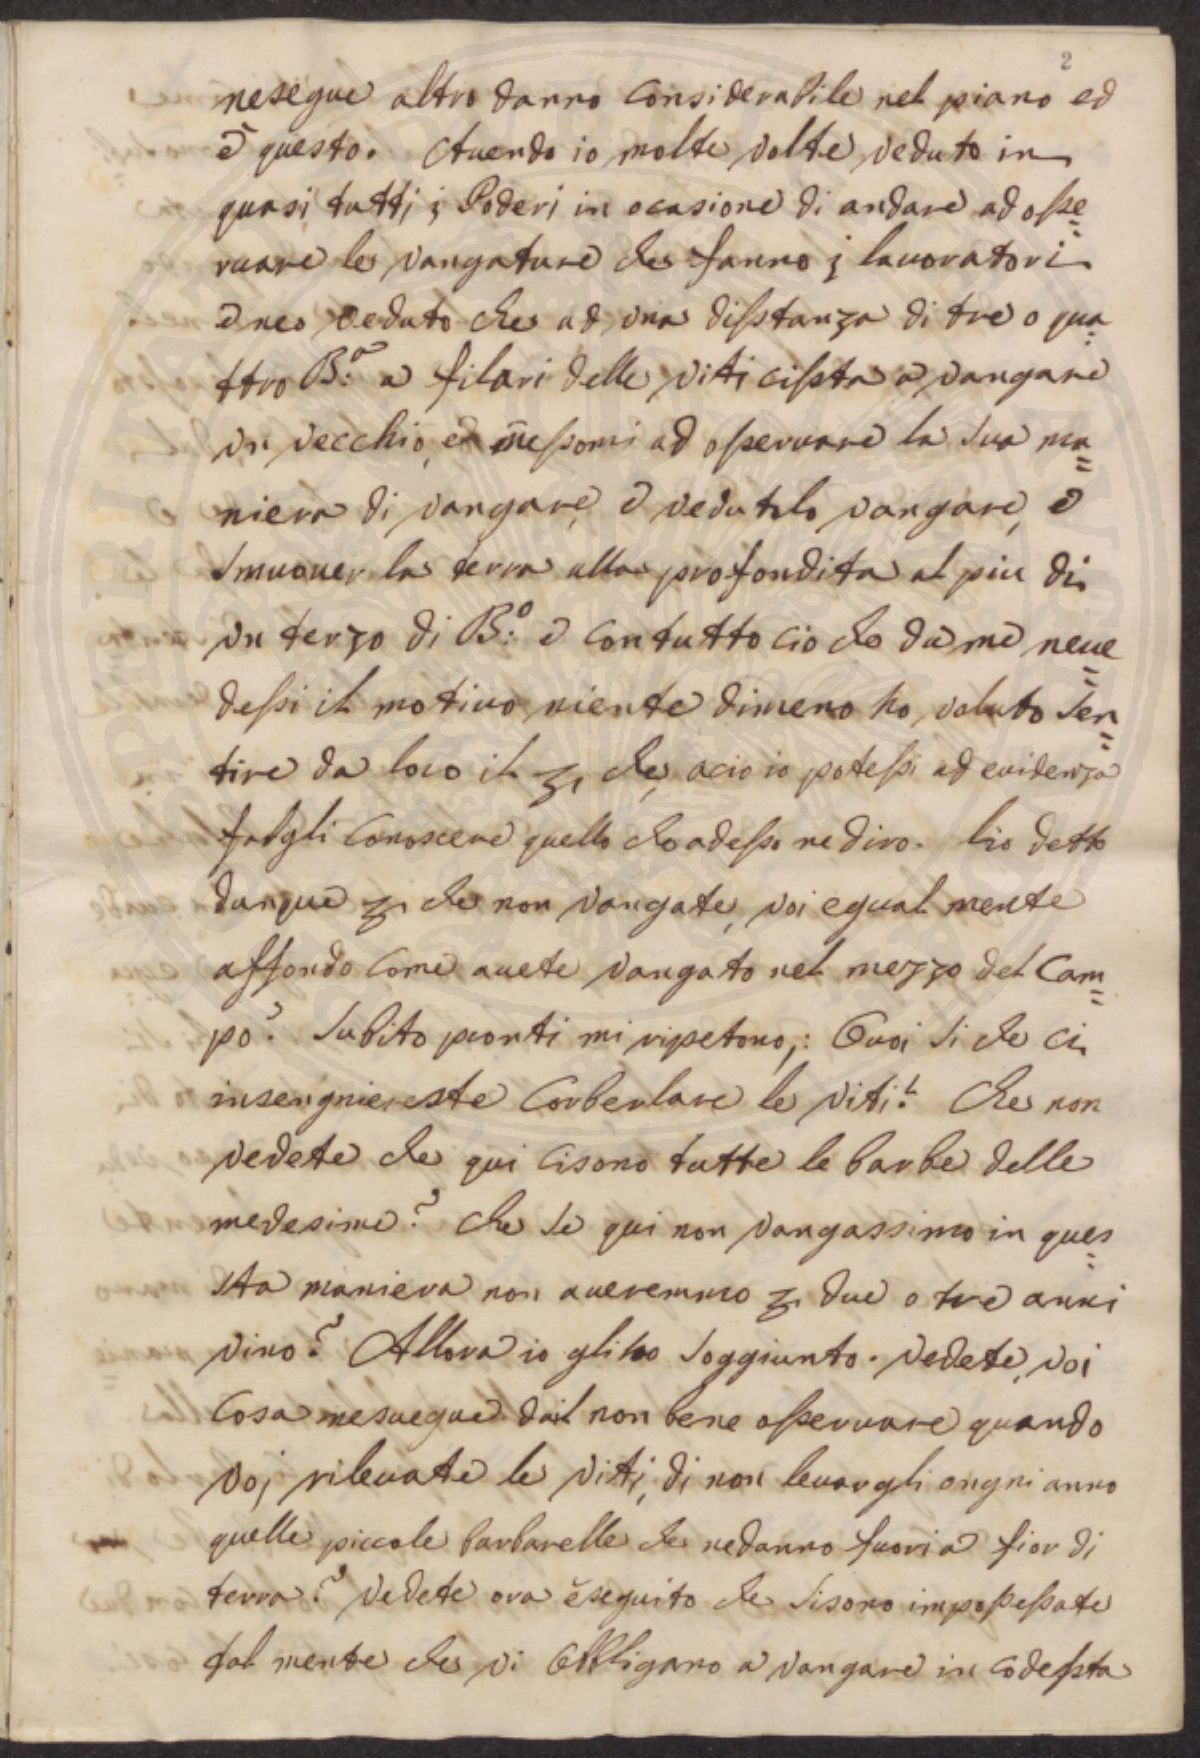 2
nesegue altro danno Considerabile nel piano ed
è questo. Auendo io molte volte veduto in
quasi tutti i Poderi in ocasione di andare ad osse=
ruare le vangature che fanno i lauoratori
è neo veduto che ad una disstanza di tre o qua=
ttro B:ª a filari delle viti cissta a vangare
un vecchio, e messomi ad osseruare la sua ma=
niera di vangare, e vedutolo vangare, e
smuouer la terra alla profondita al piu di
un terzo di B:º e contutto cio che da me neue=
dessi il motiuo niente dimeno ho voluto sen=
tire da loro il ꝑ che, acio io potessi ad euidenza
falgli Conoscere quello che adesso ne diro. Lio detto
dunque ꝑ che non vangate, voi egual mente
affondo Come auete vangato nel mezzo del Cam=
po? Subito pronti mi ripetono,: O uoi si che ci
insengniereste Corbellare le viti! Che non
vedete che qui cisono tutte le barbe delle
medesime? che se qui non vangassimo in ques=
sta maniera non aueremmo ꝑ due o tre anni
vino? Allora io gliho soggiunto. vedete, voi
Cosa nesuegue dal non bene osseruare quando
voi rileuate le viti, di non leuargli ongni anno
quelle piccole barbarelle che nedanno fuori a fior di
terra? vedete ora è seguito che sisono impossessate
tal mente che vi obbligano a vangare in codessta